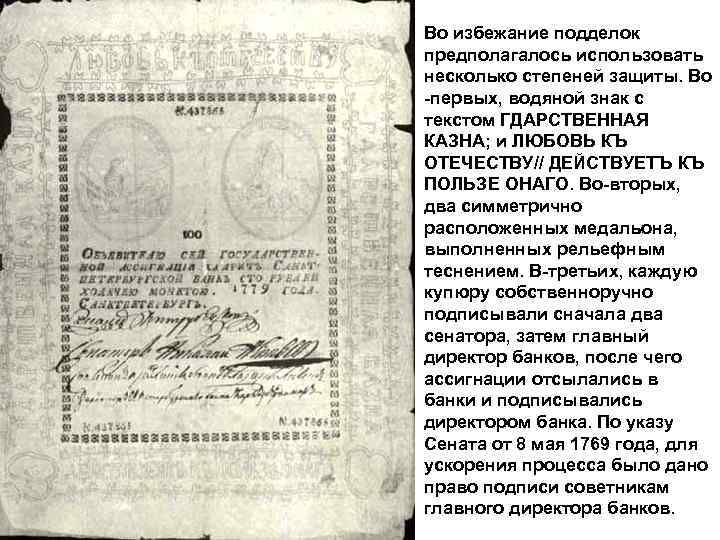 ЛЮБОВЬ КЪ ОТЕЧЕСТВУ
№.437865
100
ОБЪЯВИТЕЛЮ СЕЙ ГОСУДАРСТВЕН-
НОЙ АССИГНАЦIИ ПЛАТИТЪ САНКТ-
ПЕТЕРБУРГСКОЙ БАНКЪ СТО РУБЛЕЙ
ХОДЯЧЕЮ МОНЕТОЮ. 1779 ГОДА.
САНКТПЕТЕРБУРГЪ.
№.437865 №.437865
Во избежание подделок
предполагалось использовать
несколько степеней защиты. Во
-первых, водяной знак с
текстом ГДАРСТВЕННАЯ
КАЗНА; и ЛЮБОВЬ КЪ
ОТЕЧЕСТВУ// ДЕЙСТВУЕТЪ КЪ
ПОЛЬЗЕ ОНАГО. Во-вторых,
два симметрично
расположенных медальона,
выполненных рельефным
теснением. В-третьих, каждую
купюру собственноручно
подписывали сначала два
сенатора, затем главный
директор банков, после чего
ассигнации отсылались в
банки и подписывались
директором банка. По указу
Сената от 8 мая 1769 года, для
ускорения процесса было дано
право подписи советникам
главного директора банков.